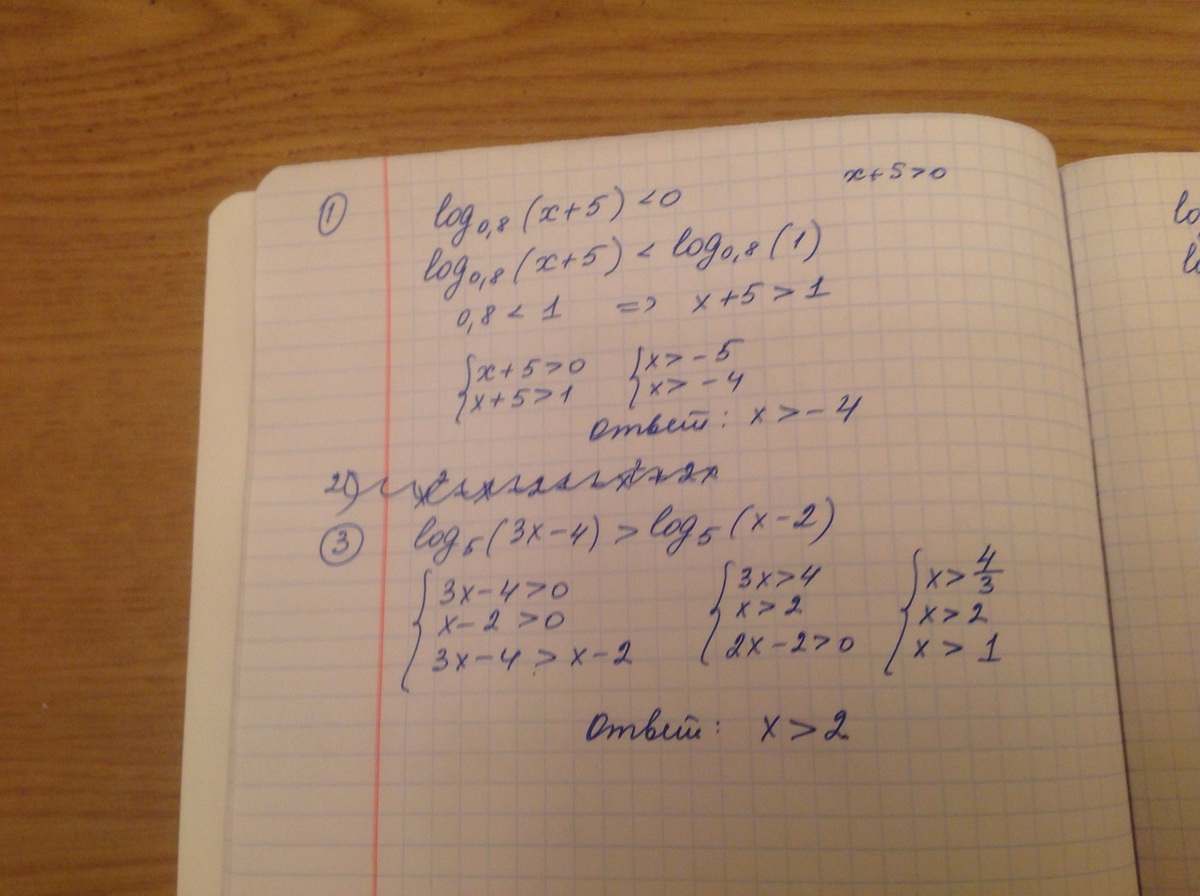 x+5>0
① log₀,₈(x+5) <0
log₀,₈(x+5) < log₀,₈(1)
0,8 < 1 => x+5 > 1
{x+5>0 {x>-5
{x+5>1 {x>-4
Ответ: x>-4
2)
③ log₅(3x-4) > log₅(x-2)
{3x-4>0 {3x>4 {x>4/3
{x-2>0 {x>2 {x>2
{3x-4>x-2 {2x-2>0 {x>1
Ответ: x>2
lo